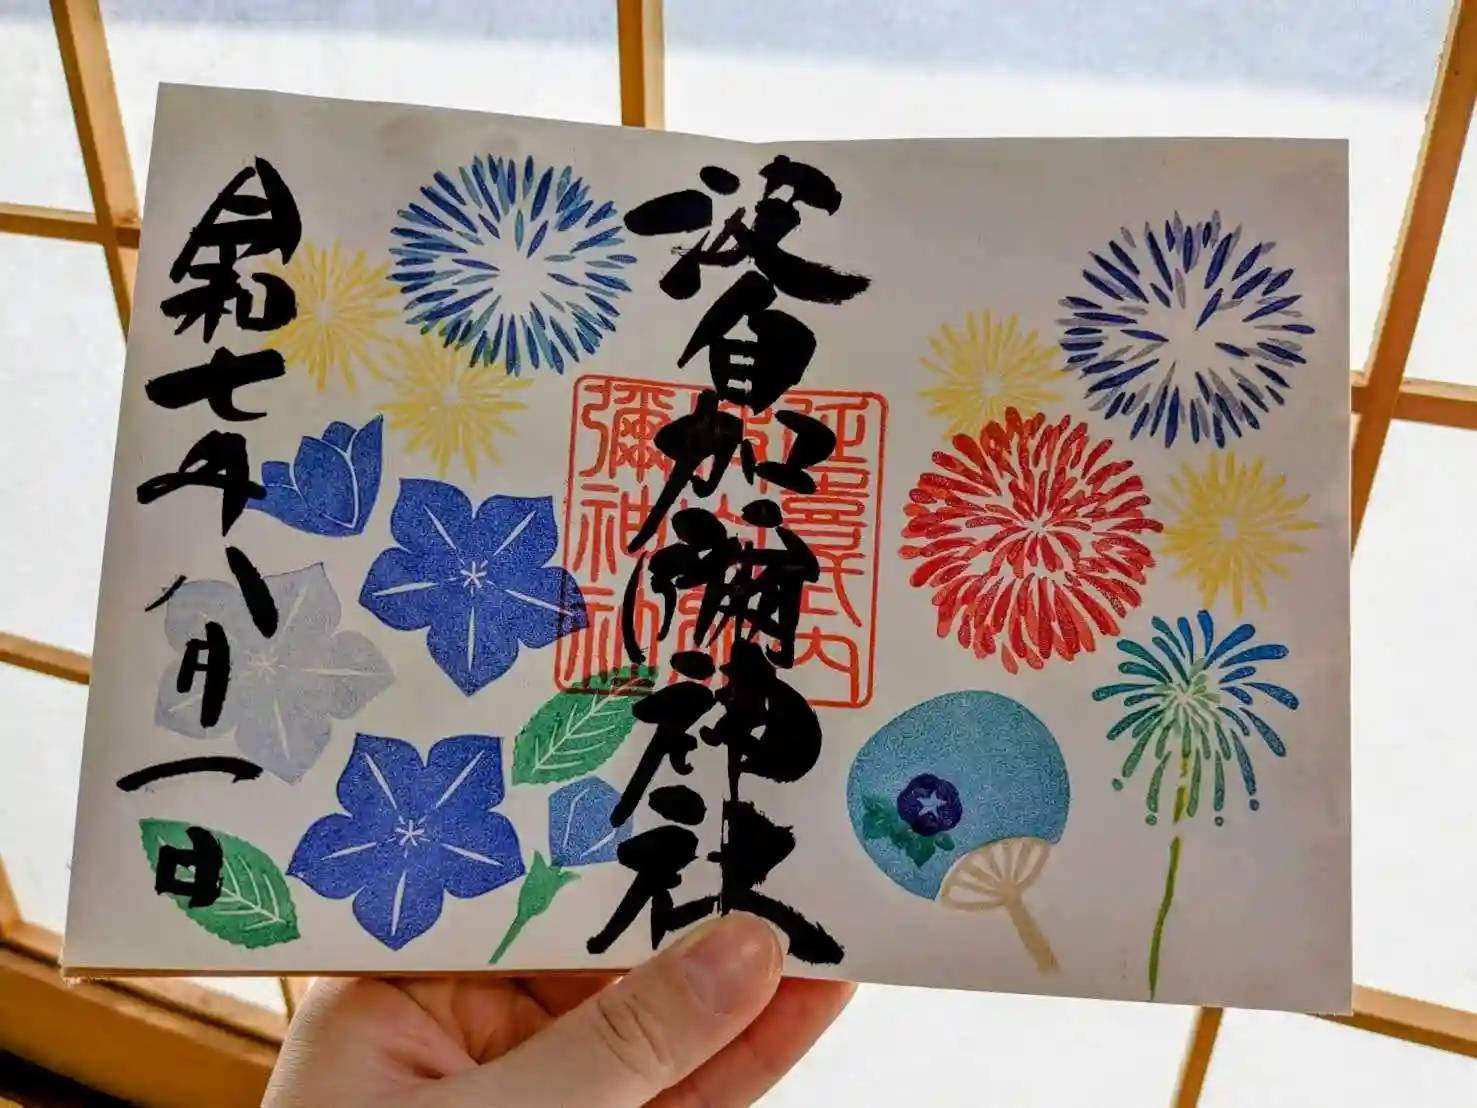 波自加彌神社
延喜式内
波自加
彌神社
令和七年八月一日